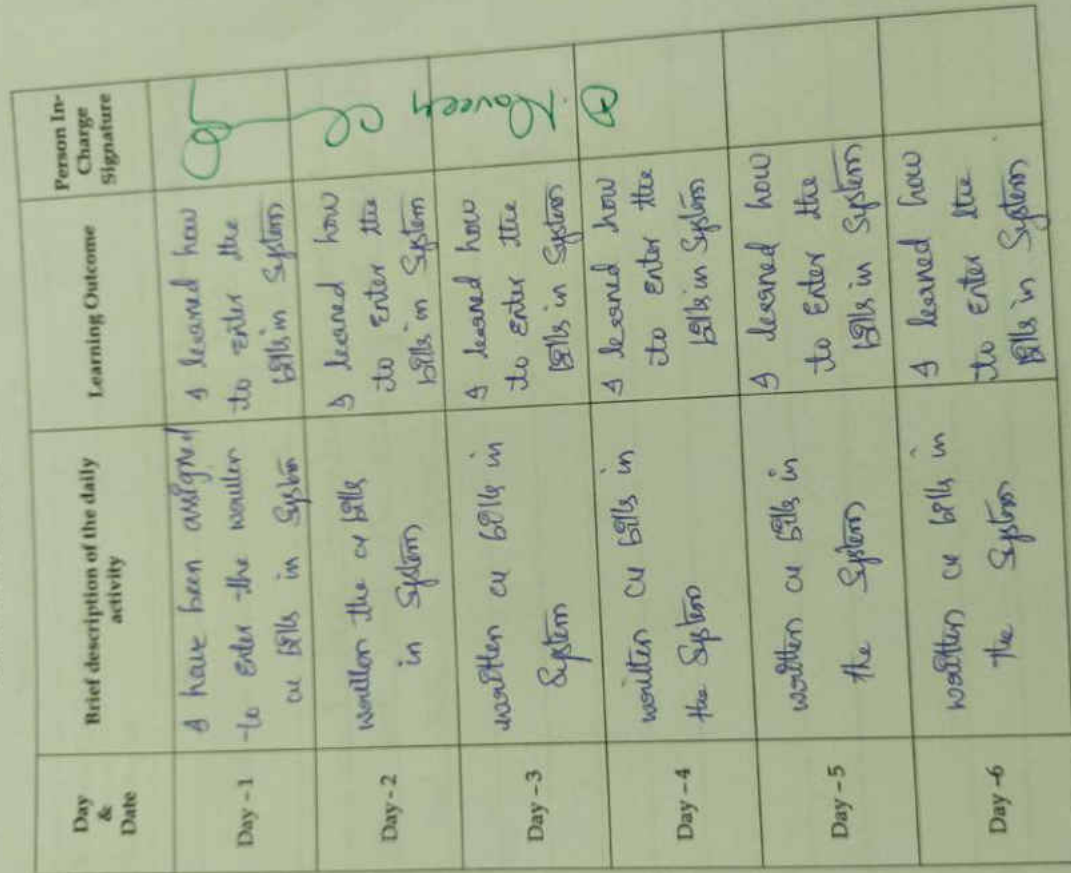 Day
&
Date
Brief description of the daily
activity
Learning Outcome
Person In-
Charge
Signature
Day - 1
I have been assigned
to Enter the written
cu bills in System
I learned how
to enter the
bills in System
Day - 2
written the cu bills
in System
I learned how
to Enter the
bills in System
Day - 3
written cu bills in
System
I learned how
to enter the
bills in System
Day - 4
written cu bills in
the System
I learned how
to enter the
bills in System
Day - 5
written cu bills in
the System
I learned how
to Enter the
bills in System
Day -6
written cu bills in
the System
I learned how
to enter the
bills in System